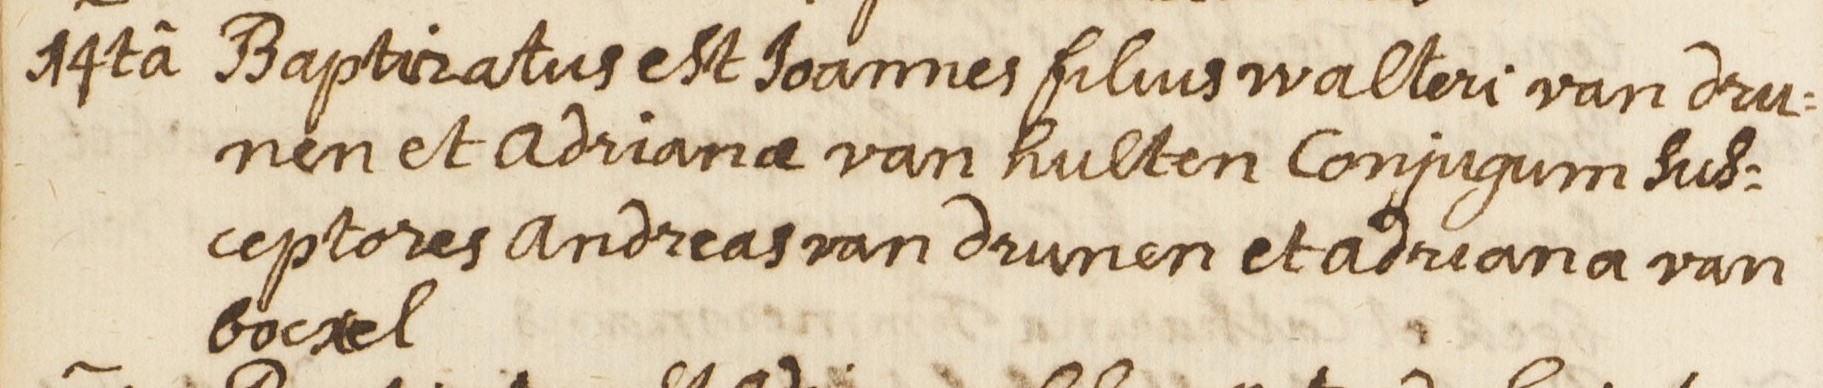 14tâ Baptizatus est Joannes filius walteri van dru=
nen et Adrianæ van hulten Conjugum sus=
ceptores Andreas van drunen et adriana van
bocxel